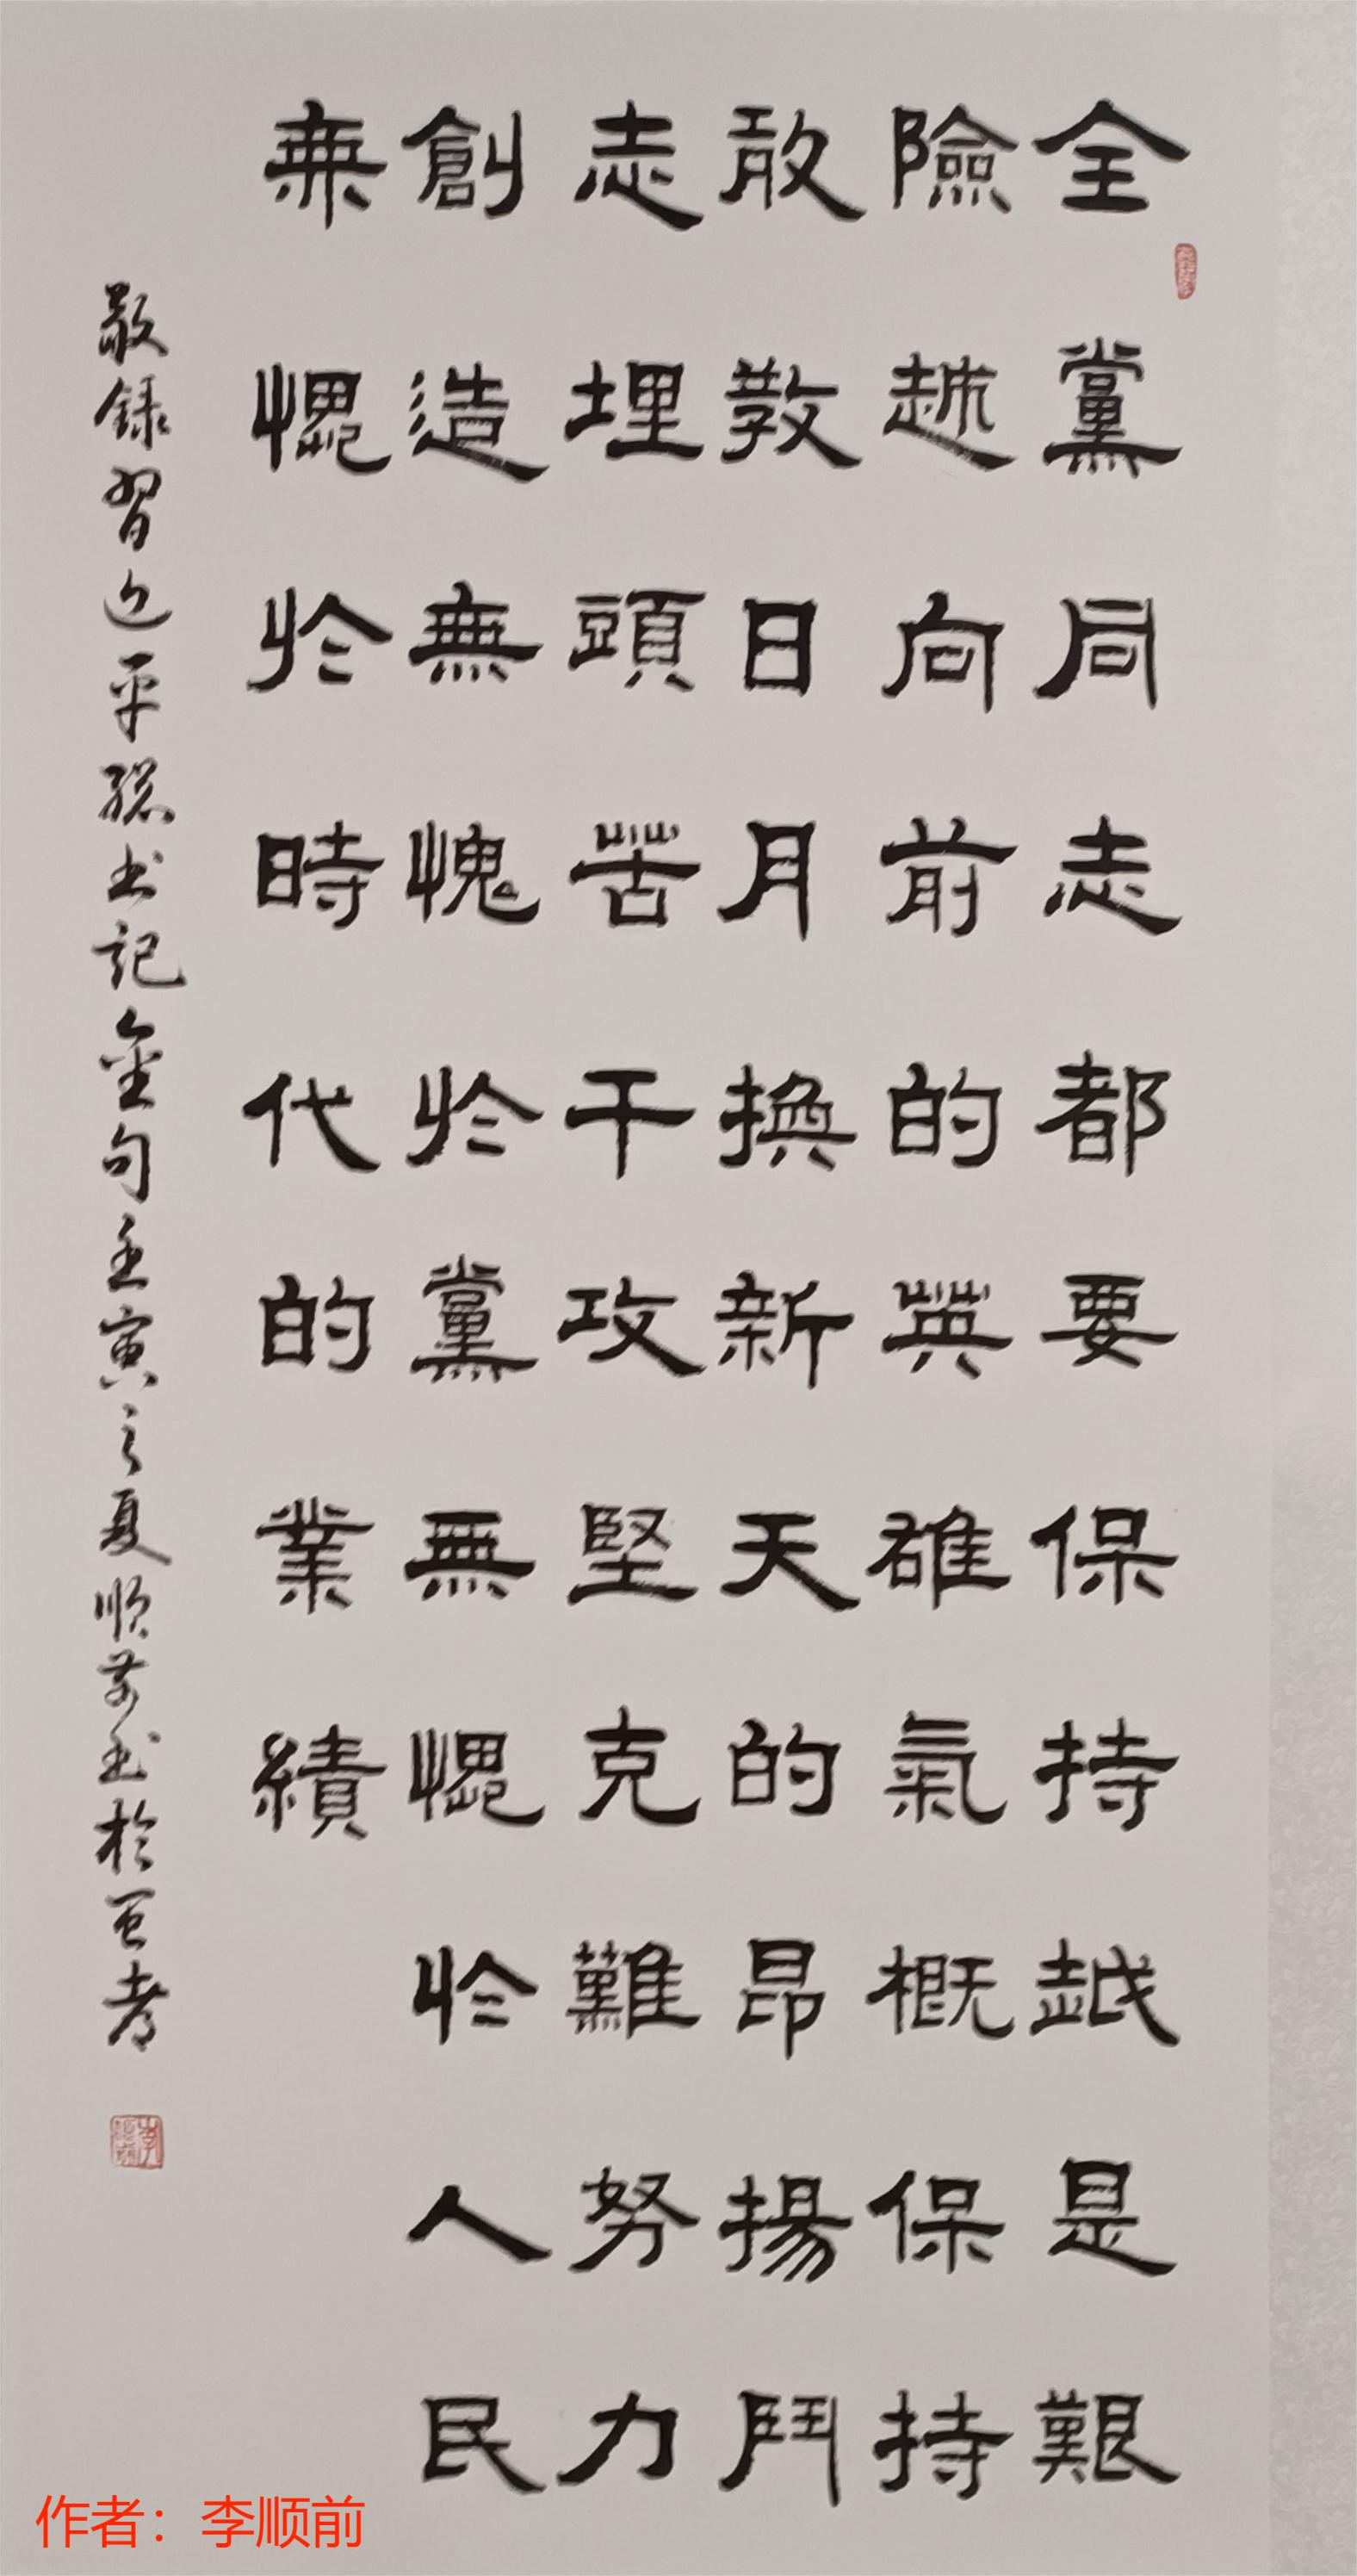 全黨同志都要保持越是艱
險越向前的英雄氣概保持
敢教日月換新天的昂揚鬥
志埋頭苦干攻堅克難努力
創造無愧於黨無愧於人民
無愧於時代的業績
敬録習近平總书記金句壬寅之夏順前书於
作者：李顺前